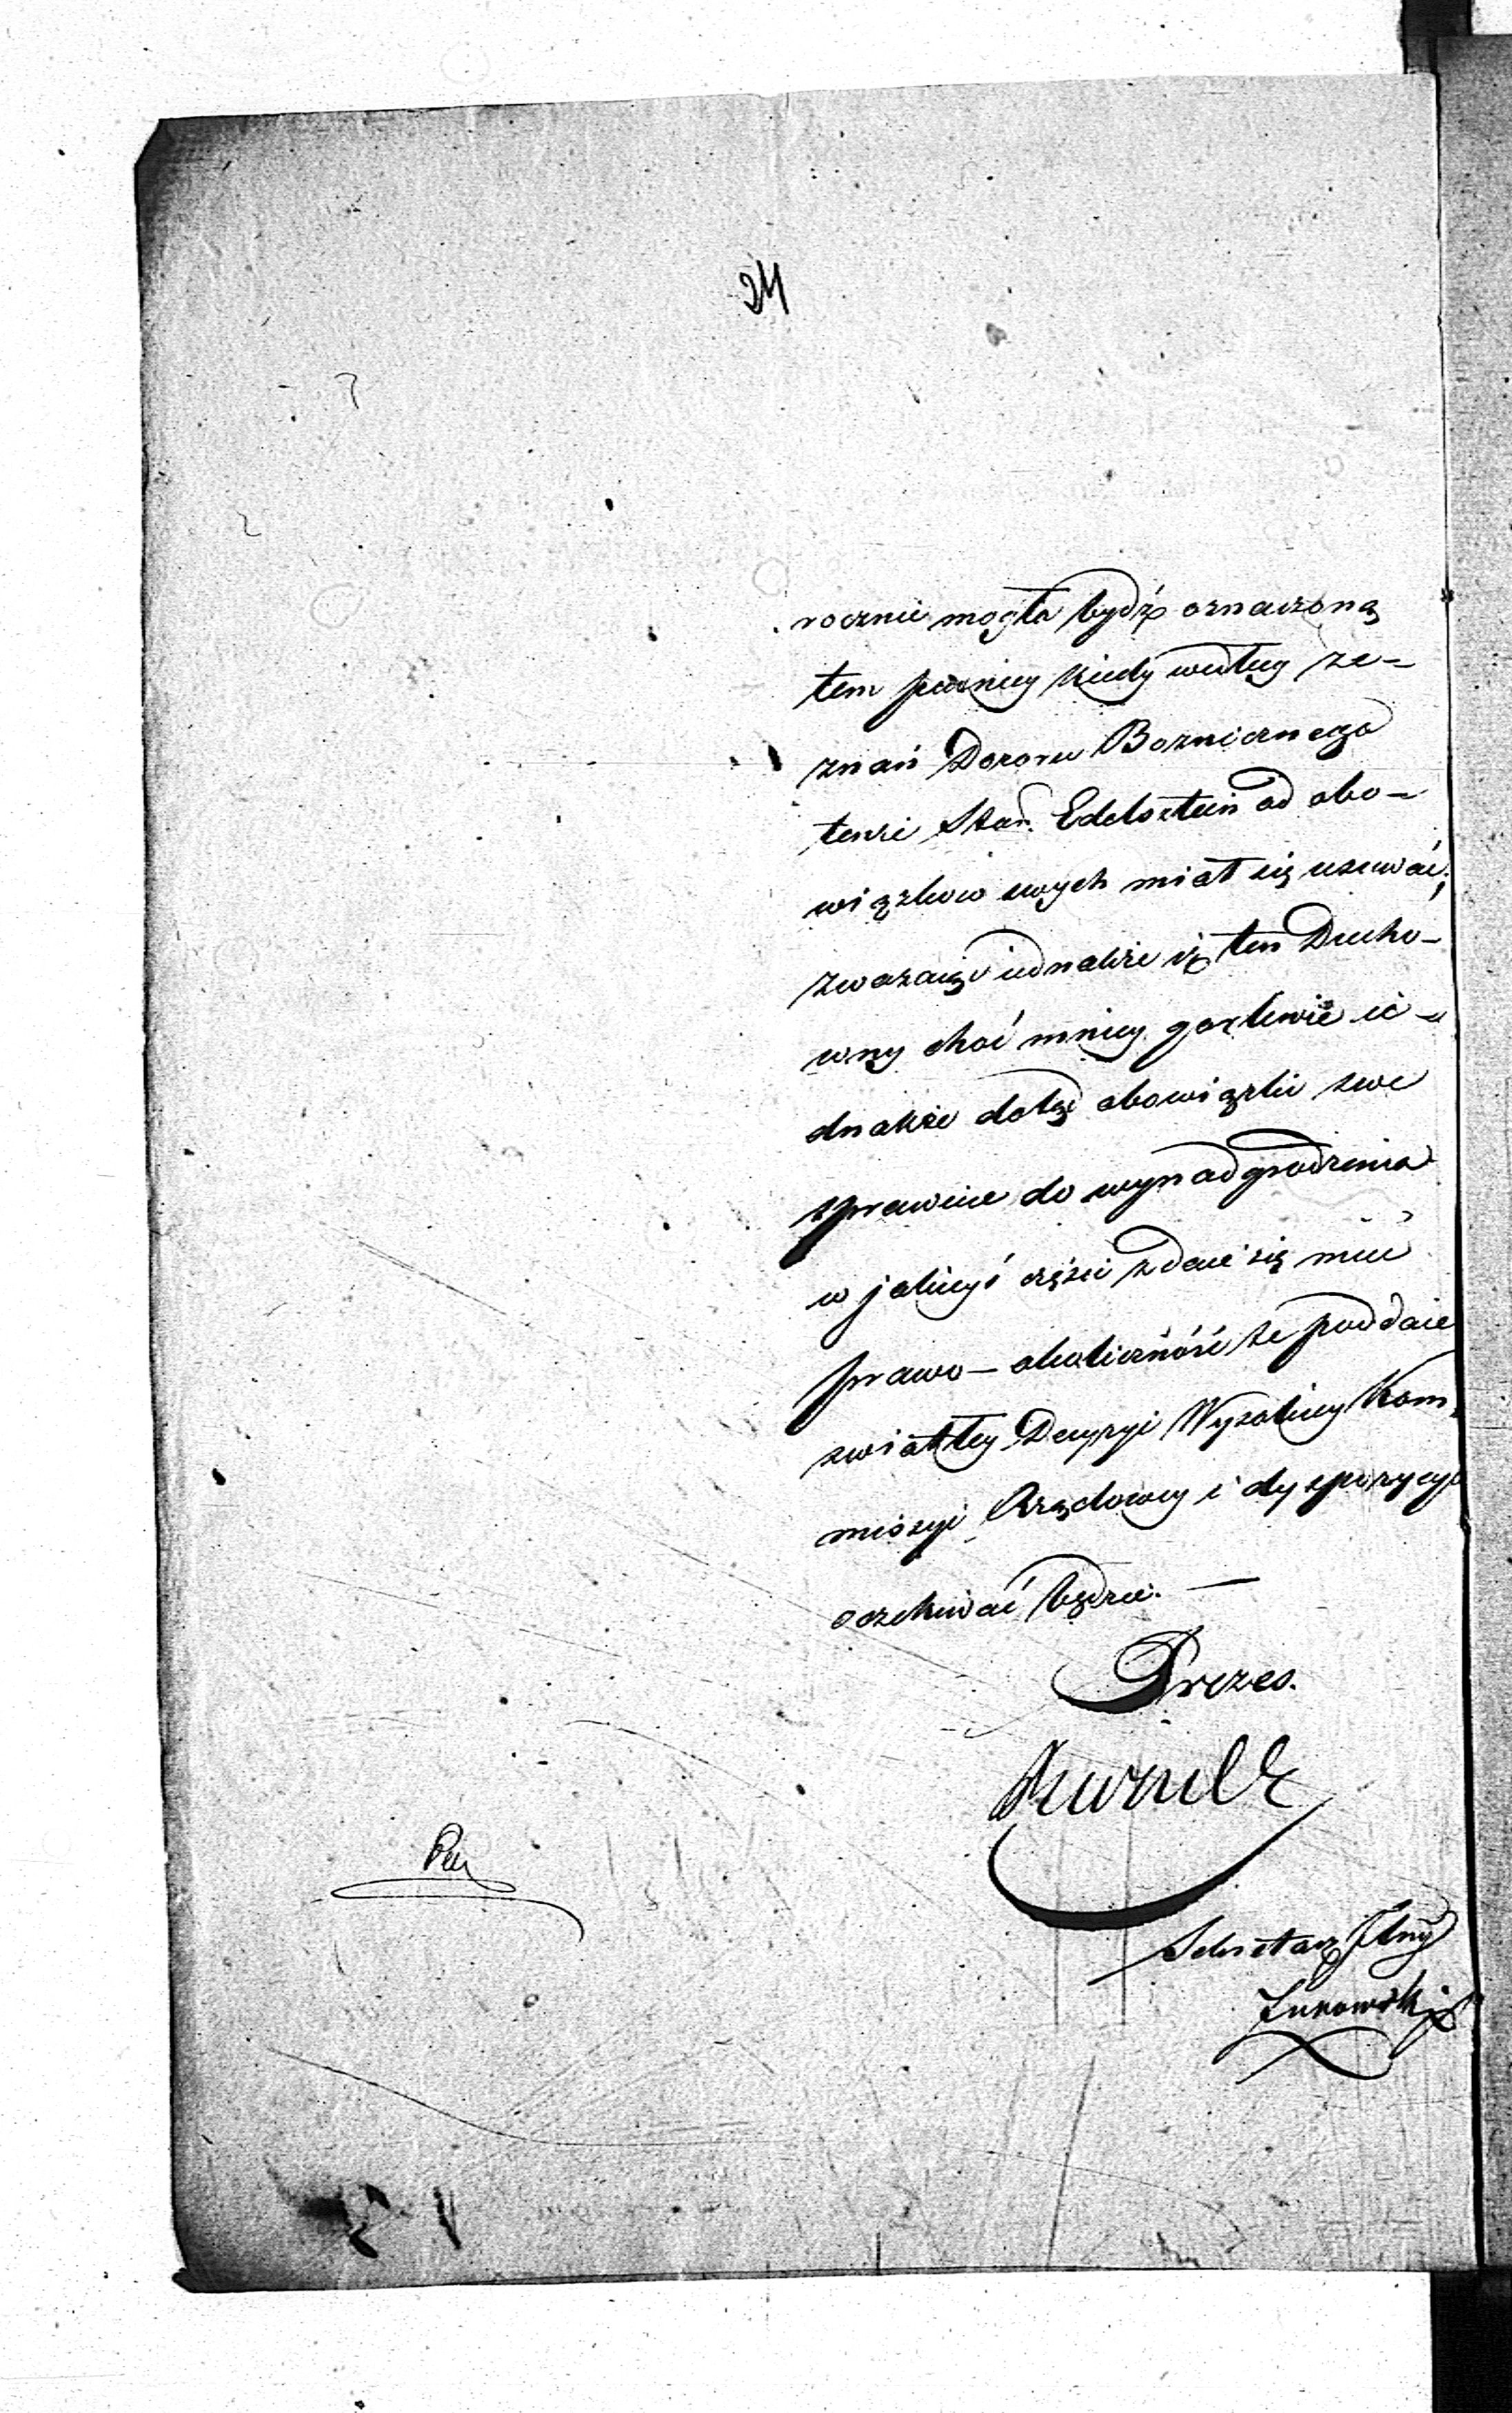 24
rocznie mogła bydź oznaczoną
tem pewniey kiedy według ze-
znań Dozoru Bozniczego
tenże Star. Edelsztein od obo-
wiązków swych miał się usuwać;
zważaiąc iednakże iż ten Ducho-
wny choć mniey gorliwie ie-
dnakże dotąd obowiązki swe
sprawuie do wynadgrodzenia
w jakieyś części zdaie się mieć
prawo – okoliczność tę poddaie
światłey Decyzyi Wysokiey Kom-
missyi Rządowey i dyspozycyi
oczekiwać będzie. —
Prezes.
Sekretarz Jlny